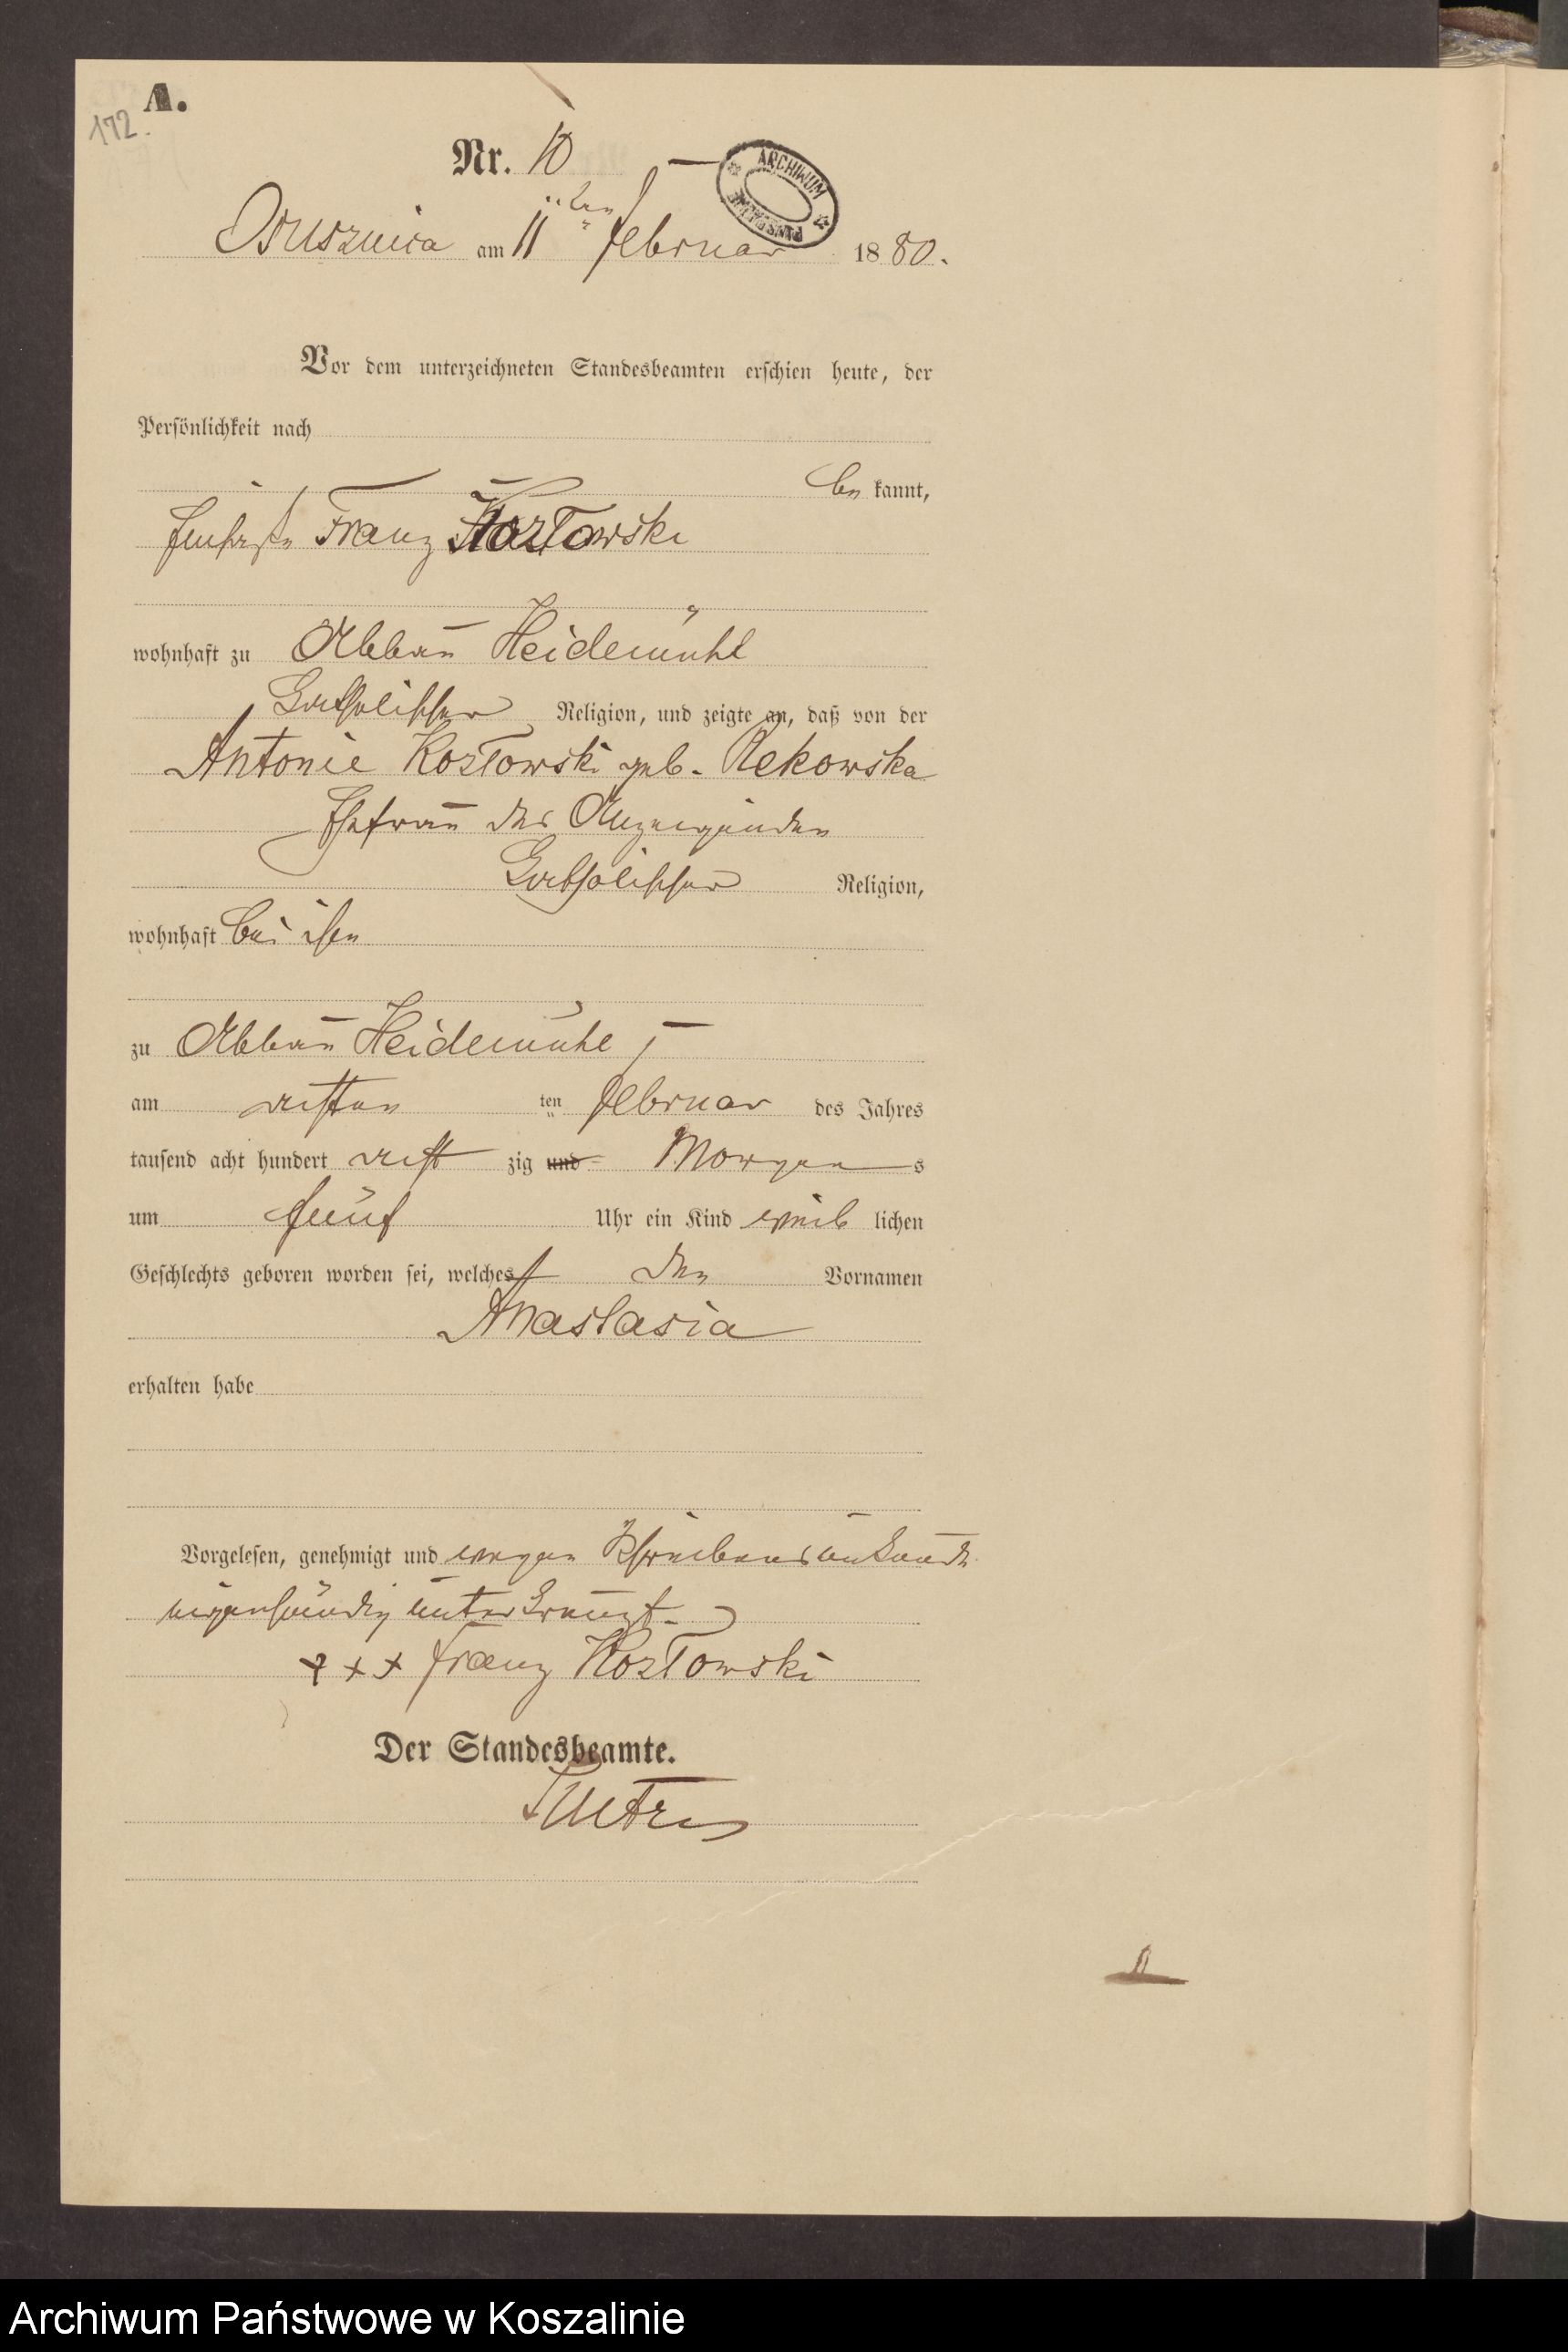 A.
172.
Nr. 10
ARCHIWUM
Osusznica am 11ten Februar 1880.
Vor dem unterzeichneten Standesbeamten erschien heute, der
Persönlichkeit nach
be kannt,
Franz Kozłowski
wohnhaft zu Abbau Heidemühl
katholischer Religion, und zeigte an, daß von der
Antonie Kozłowski geb. Rekowska
Ehefrau des Anzeigenden
katholischer Religion,
wohnhaft bei ihm
zu Abbau Heidemühl
am achten ten Februar des Jahres
tausend acht hundert acht zig und Morgen s
um fünf Uhr ein Kind weib lichen
Geschlechts geboren worden sei, welches den Vornamen
Anastasia
erhalten habe
Vorgelesen, genehmigt und wegen Schreibensunkunde
eigenhändig unterkreuzt.
+++ Franz Kozłowski
Der Standesbeamte.
Archiwum Państwowe w Koszalinie